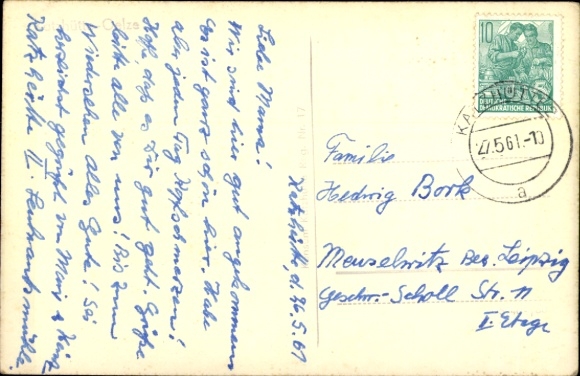 Katzhütte, d. 26.5.61
Liebe Mama!
Wir sind hier gut angekommen.
Es ist ganz schön hier. Habe
aber jeden Tag Kopfschmerzen!
Hoffe, daß es Dir gut geht. Grüße
bitte alle von uns! Bis zum
Wiedersehen alles Gute! Sei
herzlichst gegrüßt von
Katzhütte
Familie
Hedwig Bork
Meuselwitz Bez. Leipzig
Geschw.-Scholl Str. 11
II. Etage
10
DEUTSCHE
DEMOKRATISCHE REPUBLIK
KATZHÜTTE
27.5.61.-10
a